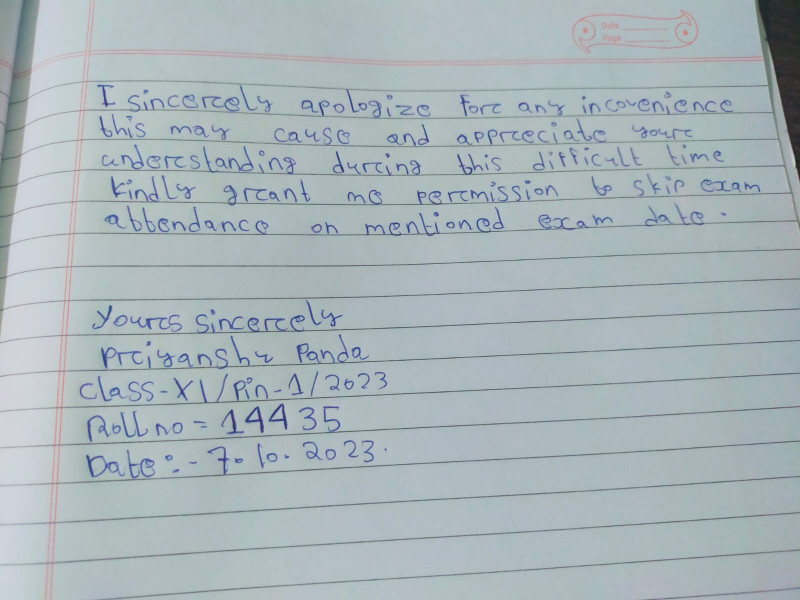 Date
Page
I sincerely apologize for any incovenience
this may cause and appreciate your
understanding during this difficult time
kindly grant me permission to skip exam
attendance on mentioned exam date.
Yours sincerely
Priyanshu Panda
Class-XI/Pin-1/2023
Roll no = 14435
Date:- 7.10.2023.